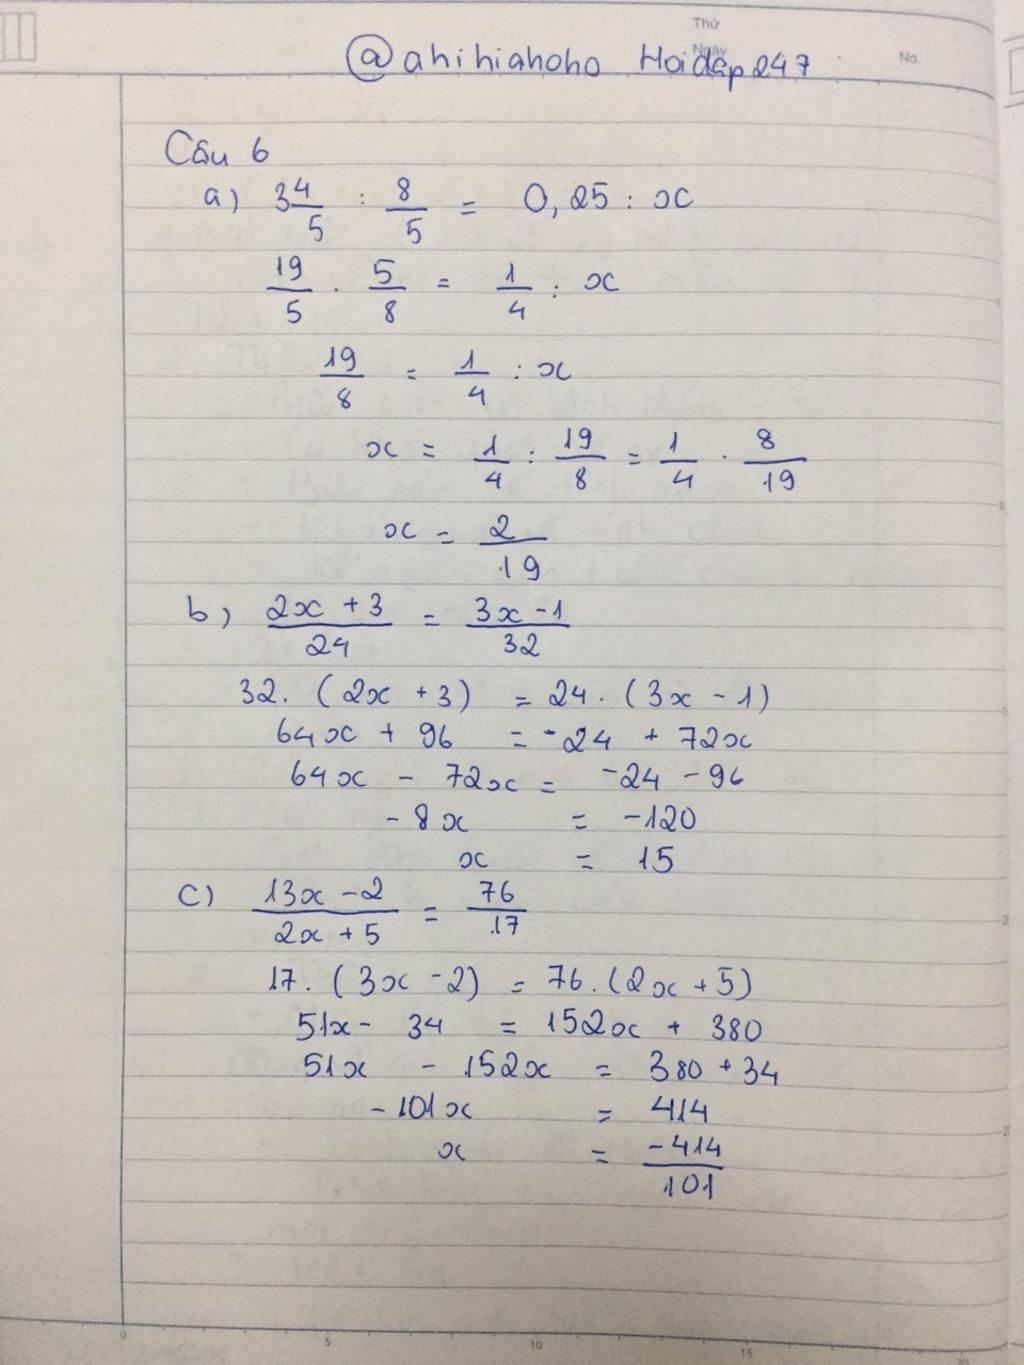 Thứ
Ngày
No.
@ahihiahoho Hoidap247
Câu 6
a) 3 4/5 : 8/5 = 0,25 : x
19/5 . 5/8 = 1/4 : x
19/8 = 1/4 : x
x = 1/4 : 19/8 = 1/4 . 8/19
x = 2/19
b) (2x + 3)/24 = (3x - 1)/32
32. (2x + 3) = 24. (3x - 1)
64x + 96 = -24 + 72x
64x - 72x = -24 - 96
-8x = -120
x = 15
c) (13x - 2)/(2x + 5) = 76/17
17. (3x - 2) = 76. (2x + 5)
51x - 34 = 152x + 380
51x - 152x = 380 + 34
-101x = 414
x = -414/101
0 5 10 15